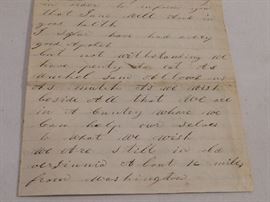 in order to inform you
that I am well and in
good health
I have had very
good
but not withstanding we
have plenty to eat As
much and Allows us
As much As we wish
beside All that We are
in A Country where we
Can help our selves
to what we wish
we Are still in old
versinnia About 12 miles
from washington